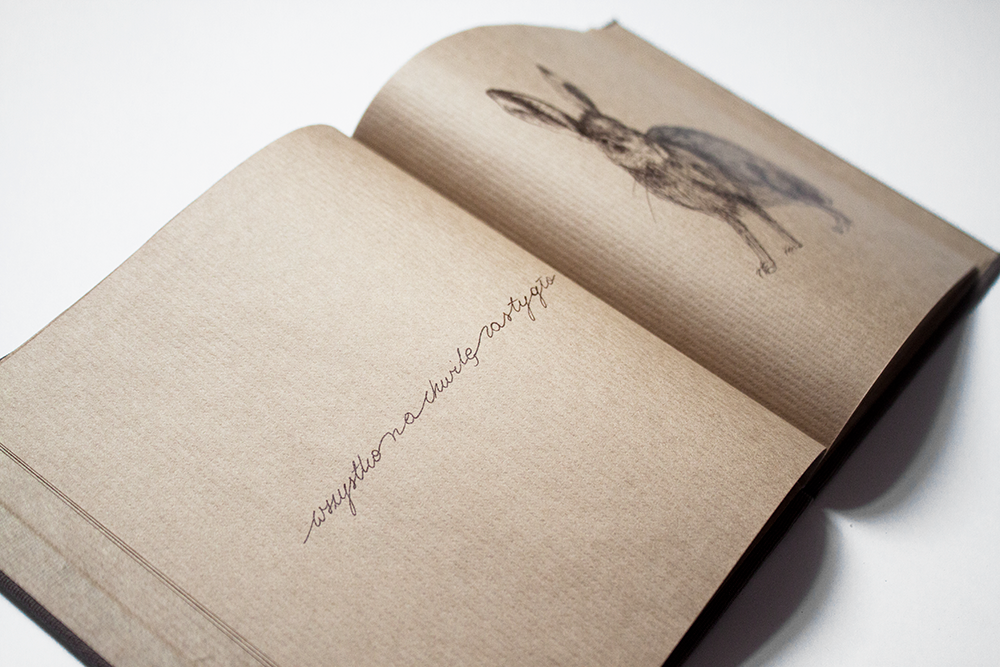 wszystko na chwilę zastygło